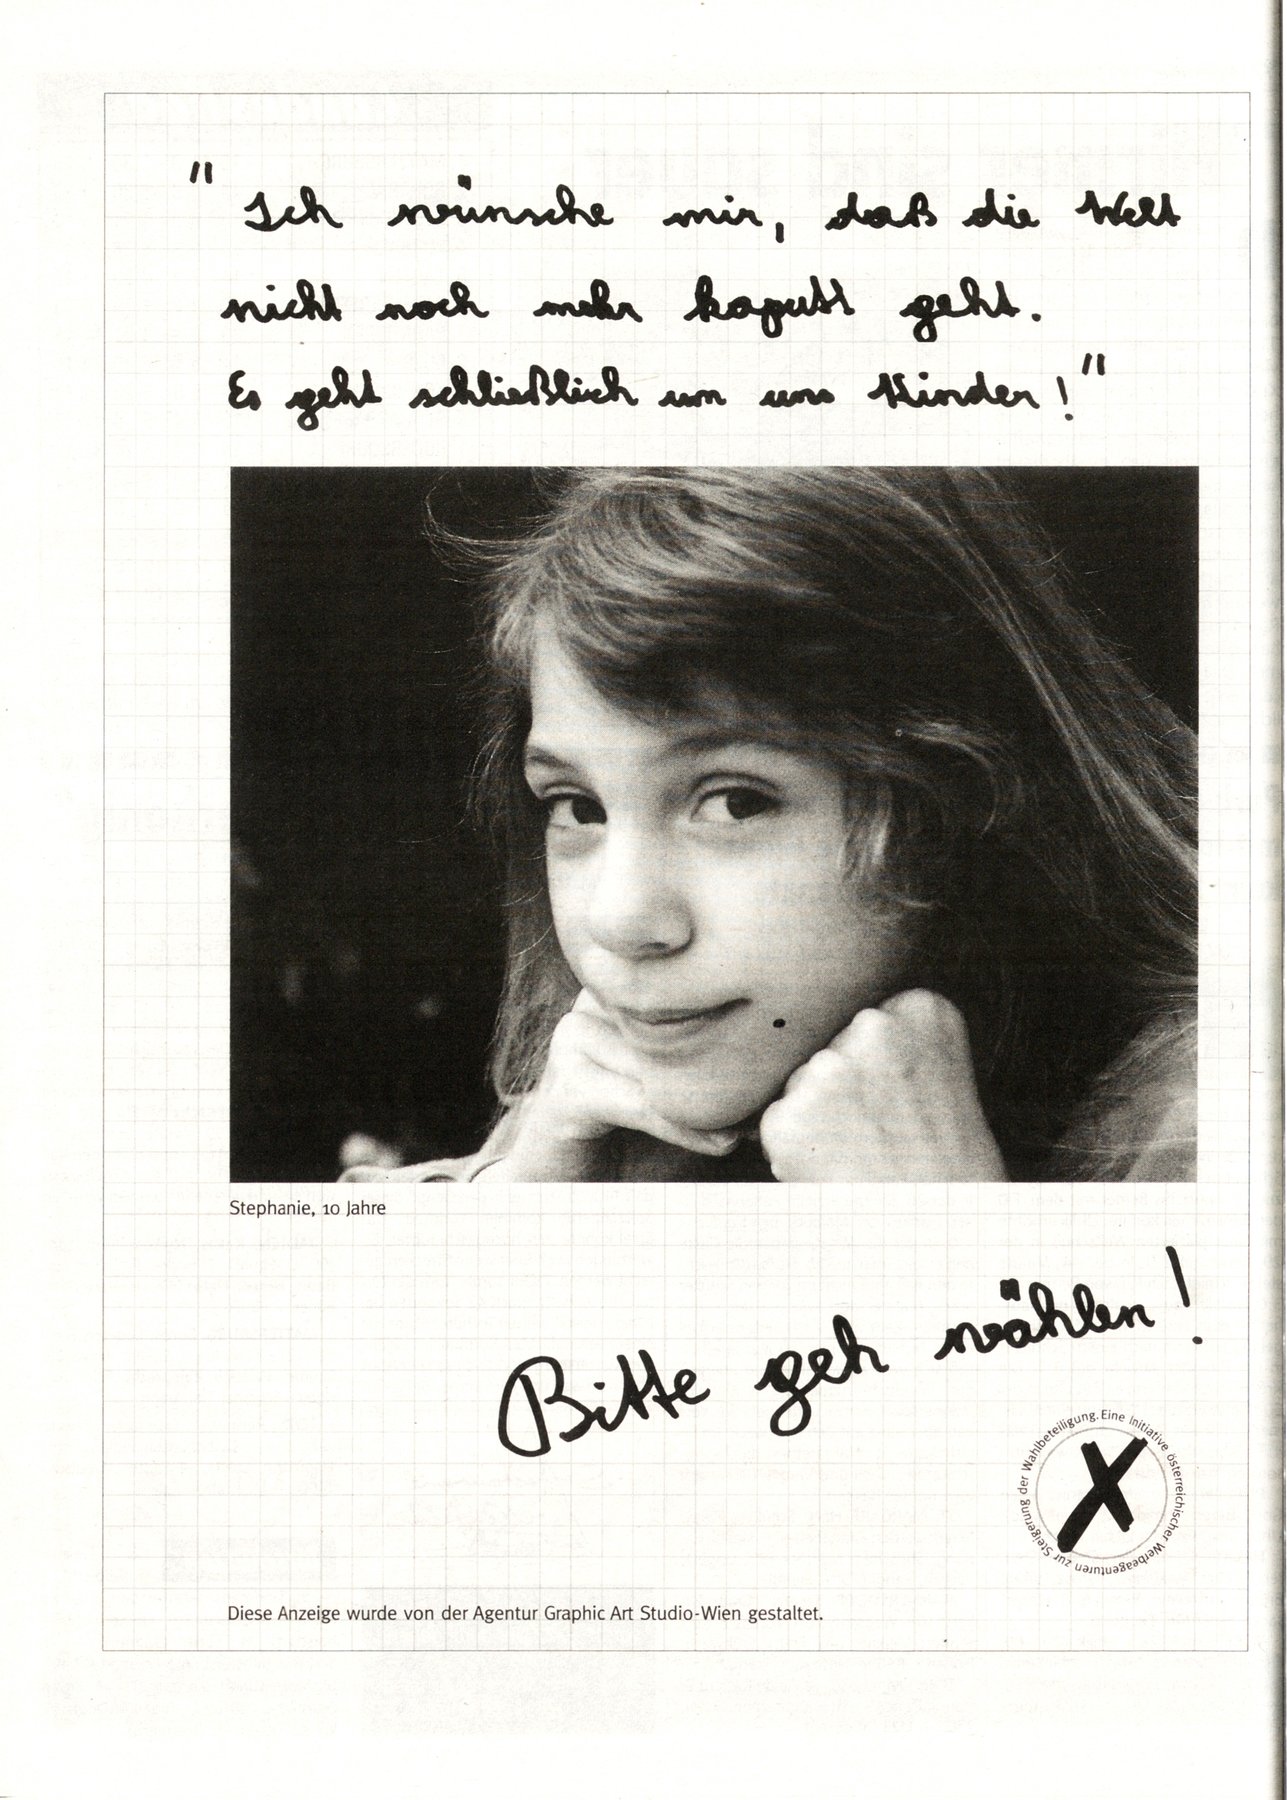 "Ich wünsche mir, daß die Welt
nicht noch mehr kaputt geht.
Es geht schließlich um uns Kinder!"
Stephanie, 10 Jahre
Bitte geh wählen!
Eine Initiative österreichischer Werbeagenturen zur Steigerung der Wahlbeteiligung.
Diese Anzeige wurde von der Agentur Graphic Art Studio-Wien gestaltet.